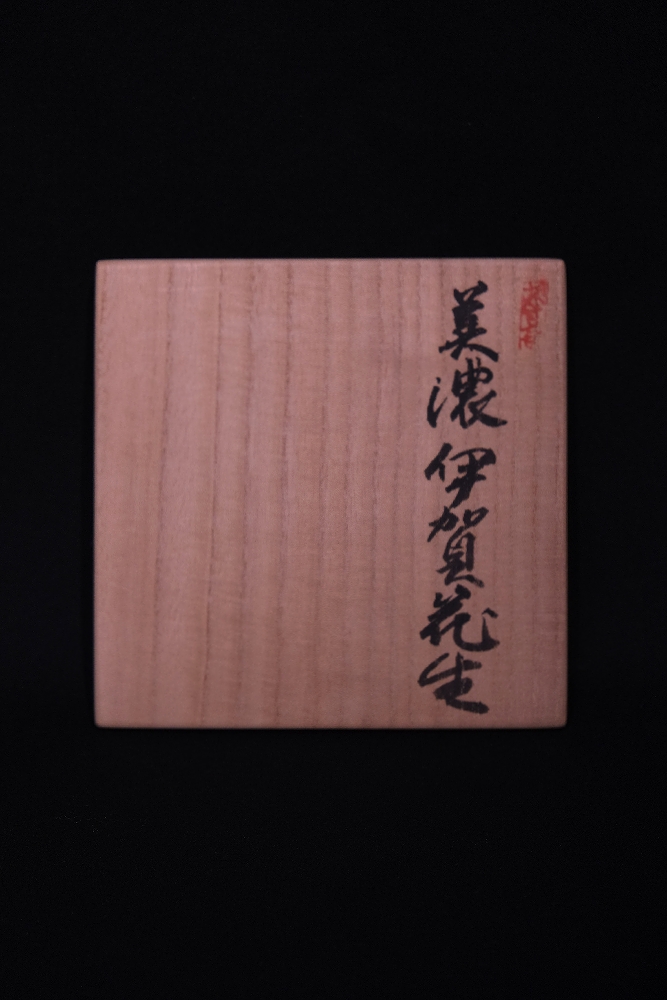 美濃伊賀花生